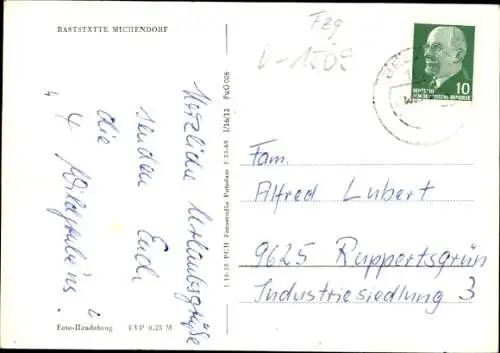 RASTSTÄTTE MICHENDORF
Herzliche Urlaubsgrüße
senden Euch
die
4 Wildgrubens.
Foto-Handabzug EVP 0,25 M
I 16 18 PGH Fotostudio Potsdam P 33/68 1/16/12 FuG 006
Fzg
10
DEUTSCHE
DEMOKRATISCHE REPUBLIK
Fam.
Alfred Lubert
9625 Ruppertsgrün
Industriesiedlung 3